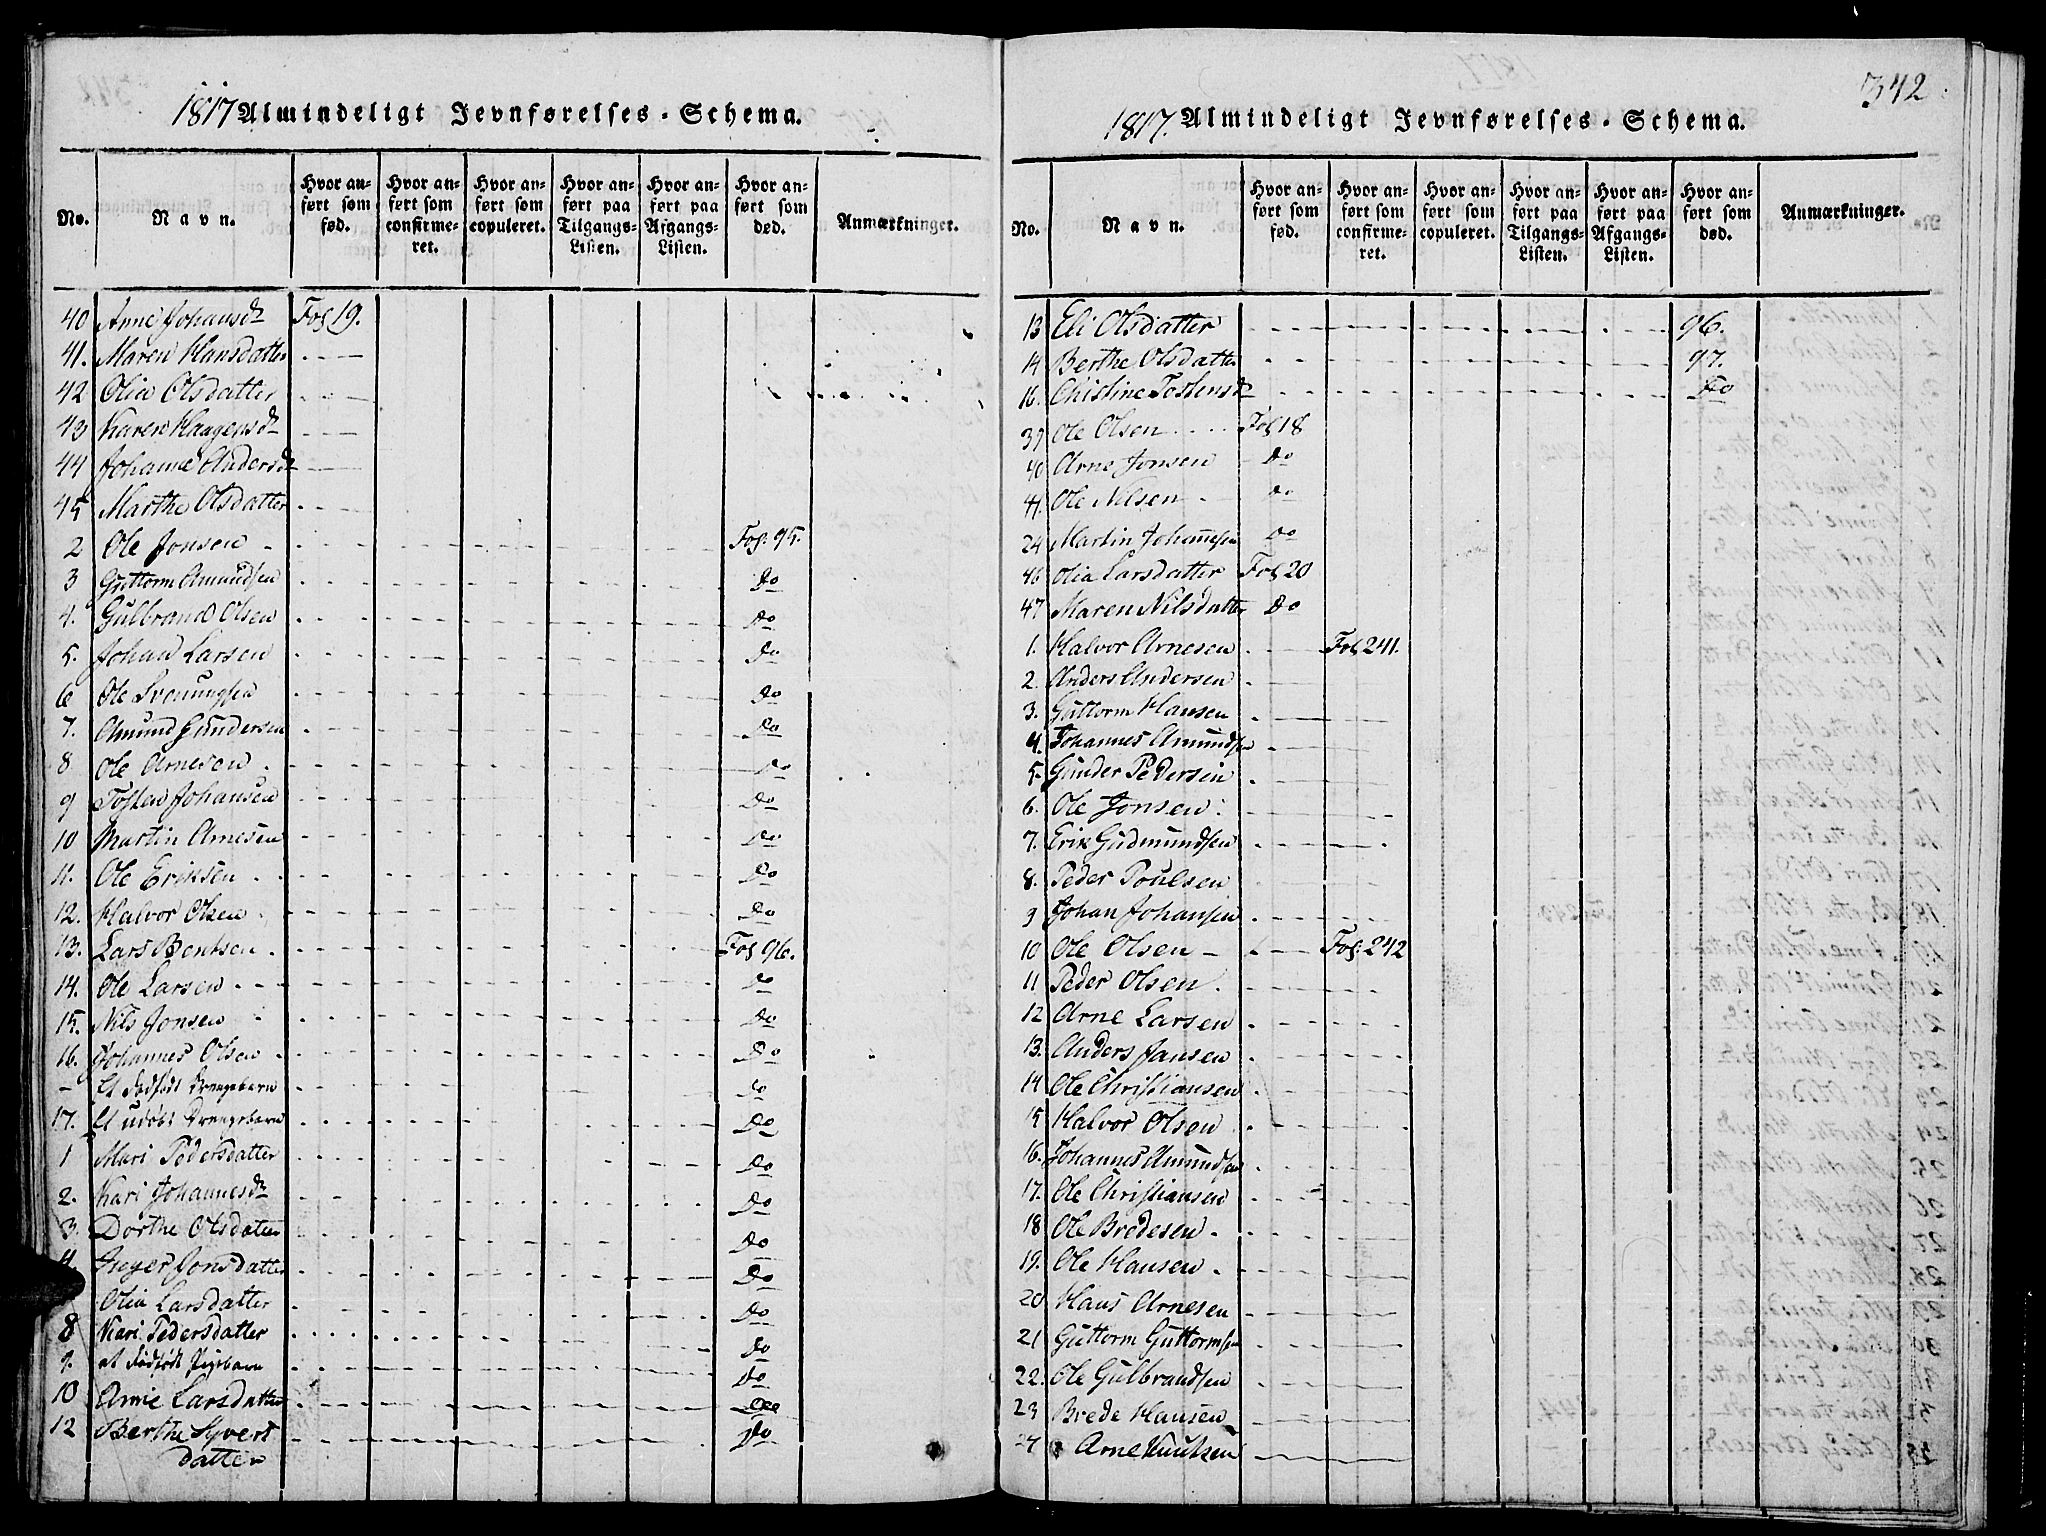 1817 Almindeligt Jevnførelses-Schema.
No. Navn. Hvor anført som fød. Hvor anført som confirmeret. Hvor anført som copuleret. Hvor anført paa Tilgangs-Listen. Hvor anført paa Afgangs-Listen. Hvor anført som død. Anmærkninger.
40 Anne Johansdr Fol 19.
41. Maren Hansdatter
42 Olia Olsdatter
43 Karen Haagensdr
44 Johanne Andersdr
45 Marthe Olsdatter
2 Ole Jonsen Fol: 95.
3 Guttorm Amundsen Do
4. Gulbrand Olsen Do
5. Johan Larsen Do
6 Ole Svenungsen Do
7. Amund Gundersen Do
8 Ole Arnesen Do
9 Tosten Johansen Do
10 Martin Arnesen Do
11. Ole Eriksen Do
12. Halvor Olsen Do
13. Lars Bentsen Fol 96.
14. Ole Larsen Do
15. Nils Jonsen Do
16. Johannes Olsen Do
– Et dødfødt Drengebarn Do
17. Et udøbt Drengebarn Do
1 Mari Pedersdatter Do
2. Kari Johannesdr Do
3. Dorthe Olsdatter Do
4 Inger Jonsdatter Do
Olia Larsdatter Do
8 Kari Pedersdatter Do
9. et dødfødt Pigebarn Do
10 Anne Larsdatter Do
12 Berthe Syvert
datter Do
342
1817. Almindeligt Jevnførelses-Schema.
No. Navn. Hvor anført som fød. Hvor anført som confirmeret. Hvor anført som copuleret. Hvor anført paa Tilgangs-Listen. Hvor anført paa Afgangs-Listen. Hvor anført som død. Anmærkninger.
13 Eli Olsdatter 96.
14 Berthe Olsdatter 97.
16. Christine Tostensdr Do
39 Ole Olsen Fol 18
40 Arne Jonsen Do
41. Ole Nilsen Do
24 Martin Johannesen Do
46 Olia Larsdatter Fol 20
47 Maren Nilsdatter Do
1. Halvor Arnesen Fol 241.
2. Anders Andersen
3. Guttorm Hansen
4. Johannes Amundsen
5. Gunder Pedersen
6. Ole Jonsen
7. Erik Gudmundsen
8. Peder Poulsen
9 Johan Johansen
10 Ole Olsen Fol: 242
11 Peder Olsen
12 Arne Larsen
13. Anders Jansen
14 Ole Christiansen
15 Halvor Olsen
16. Johannes Amundsen
17. Ole Christiansen
18 Ole Bredesen
19. Ole Hansen
20 Hans Arnesen
21 Guttorm Guttormsen
22. Ole Gulbrandsen
23 Brede Hansen
24 Arne Knutsen